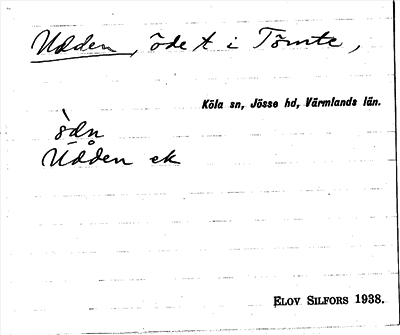 Udden, öde t i Tömte,
Köla sn, Jösse hd, Värmlands län.
ùdn
Udden ek
ELOV SILFORS 1938.